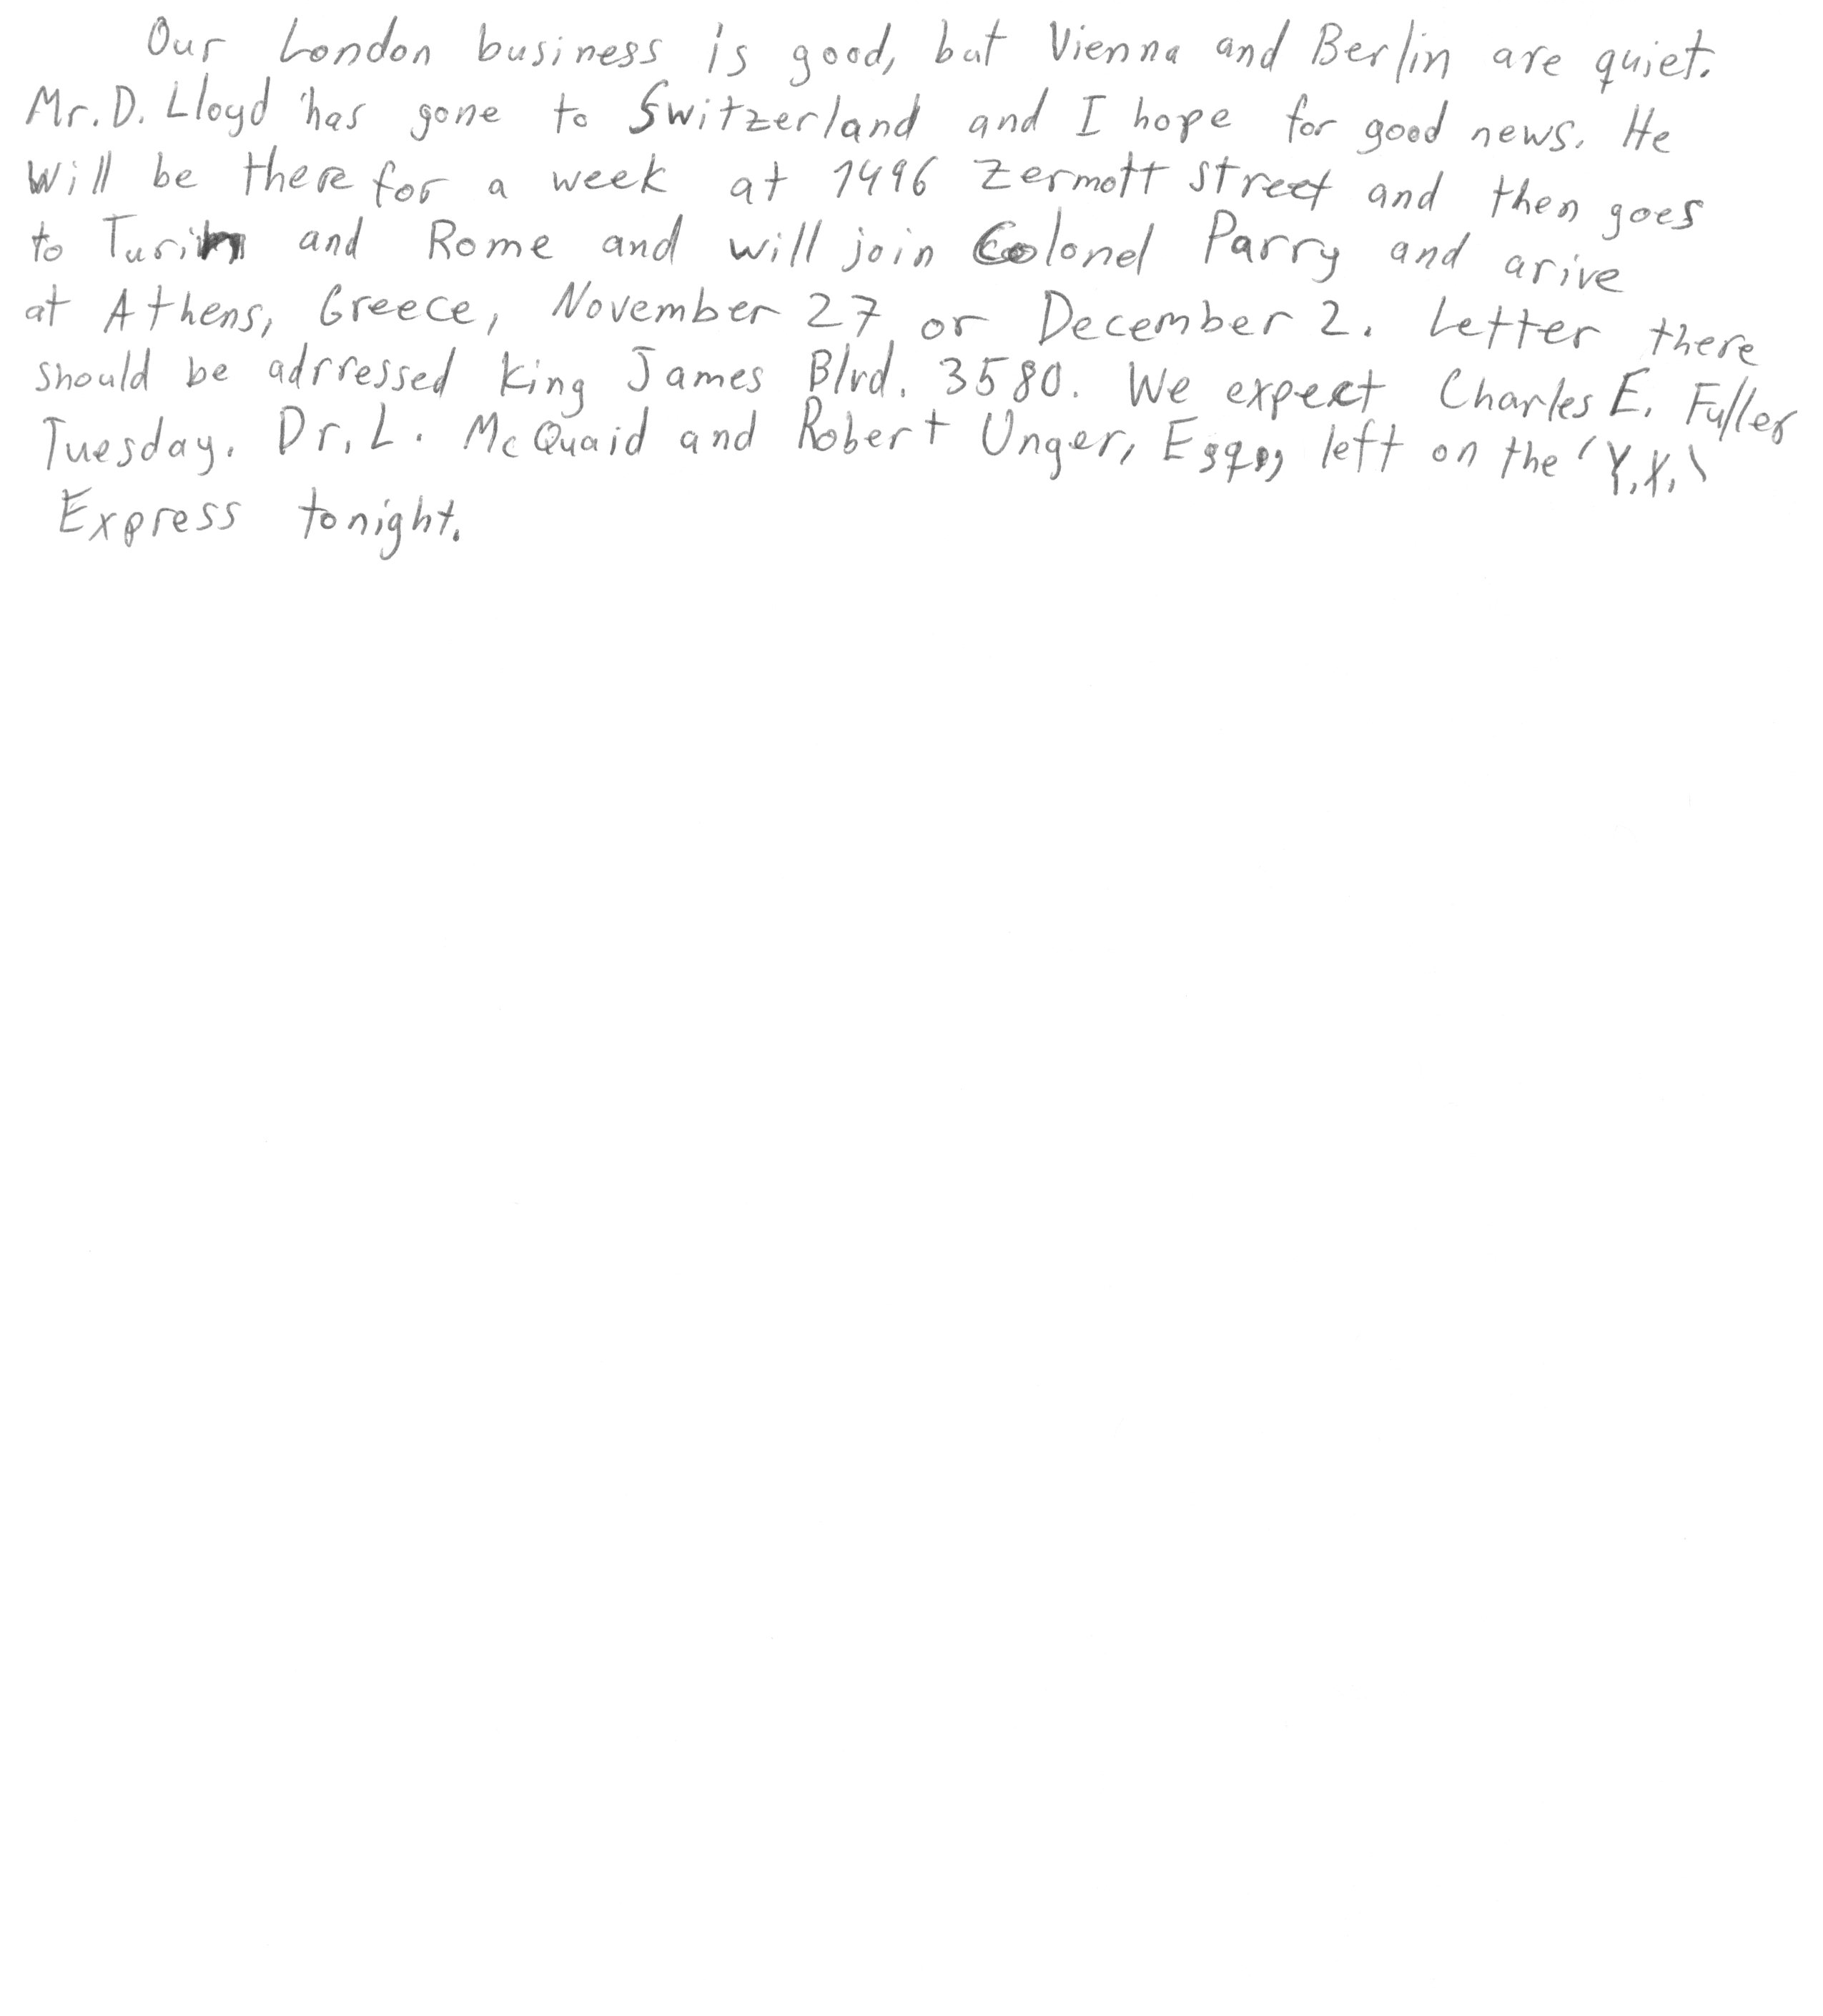 Our London business is good, but Vienna and Berlin are quiet.
Mr. D. Lloyd has gone to Switzerland and I hope for good news. He
will be there for a week at 1496 Zermott street and then goes
to Turin and Rome and will join Colonel Parry and arive
at Athens, Greece, November 27 or December 2. Letter there
should be adrressed King James Blvd. 3580. We expect Charles E. Fuller
Tuesday. Dr. L. McQuaid and Robert Unger, Esq., left on the 'Y.X.'
Express tonight.